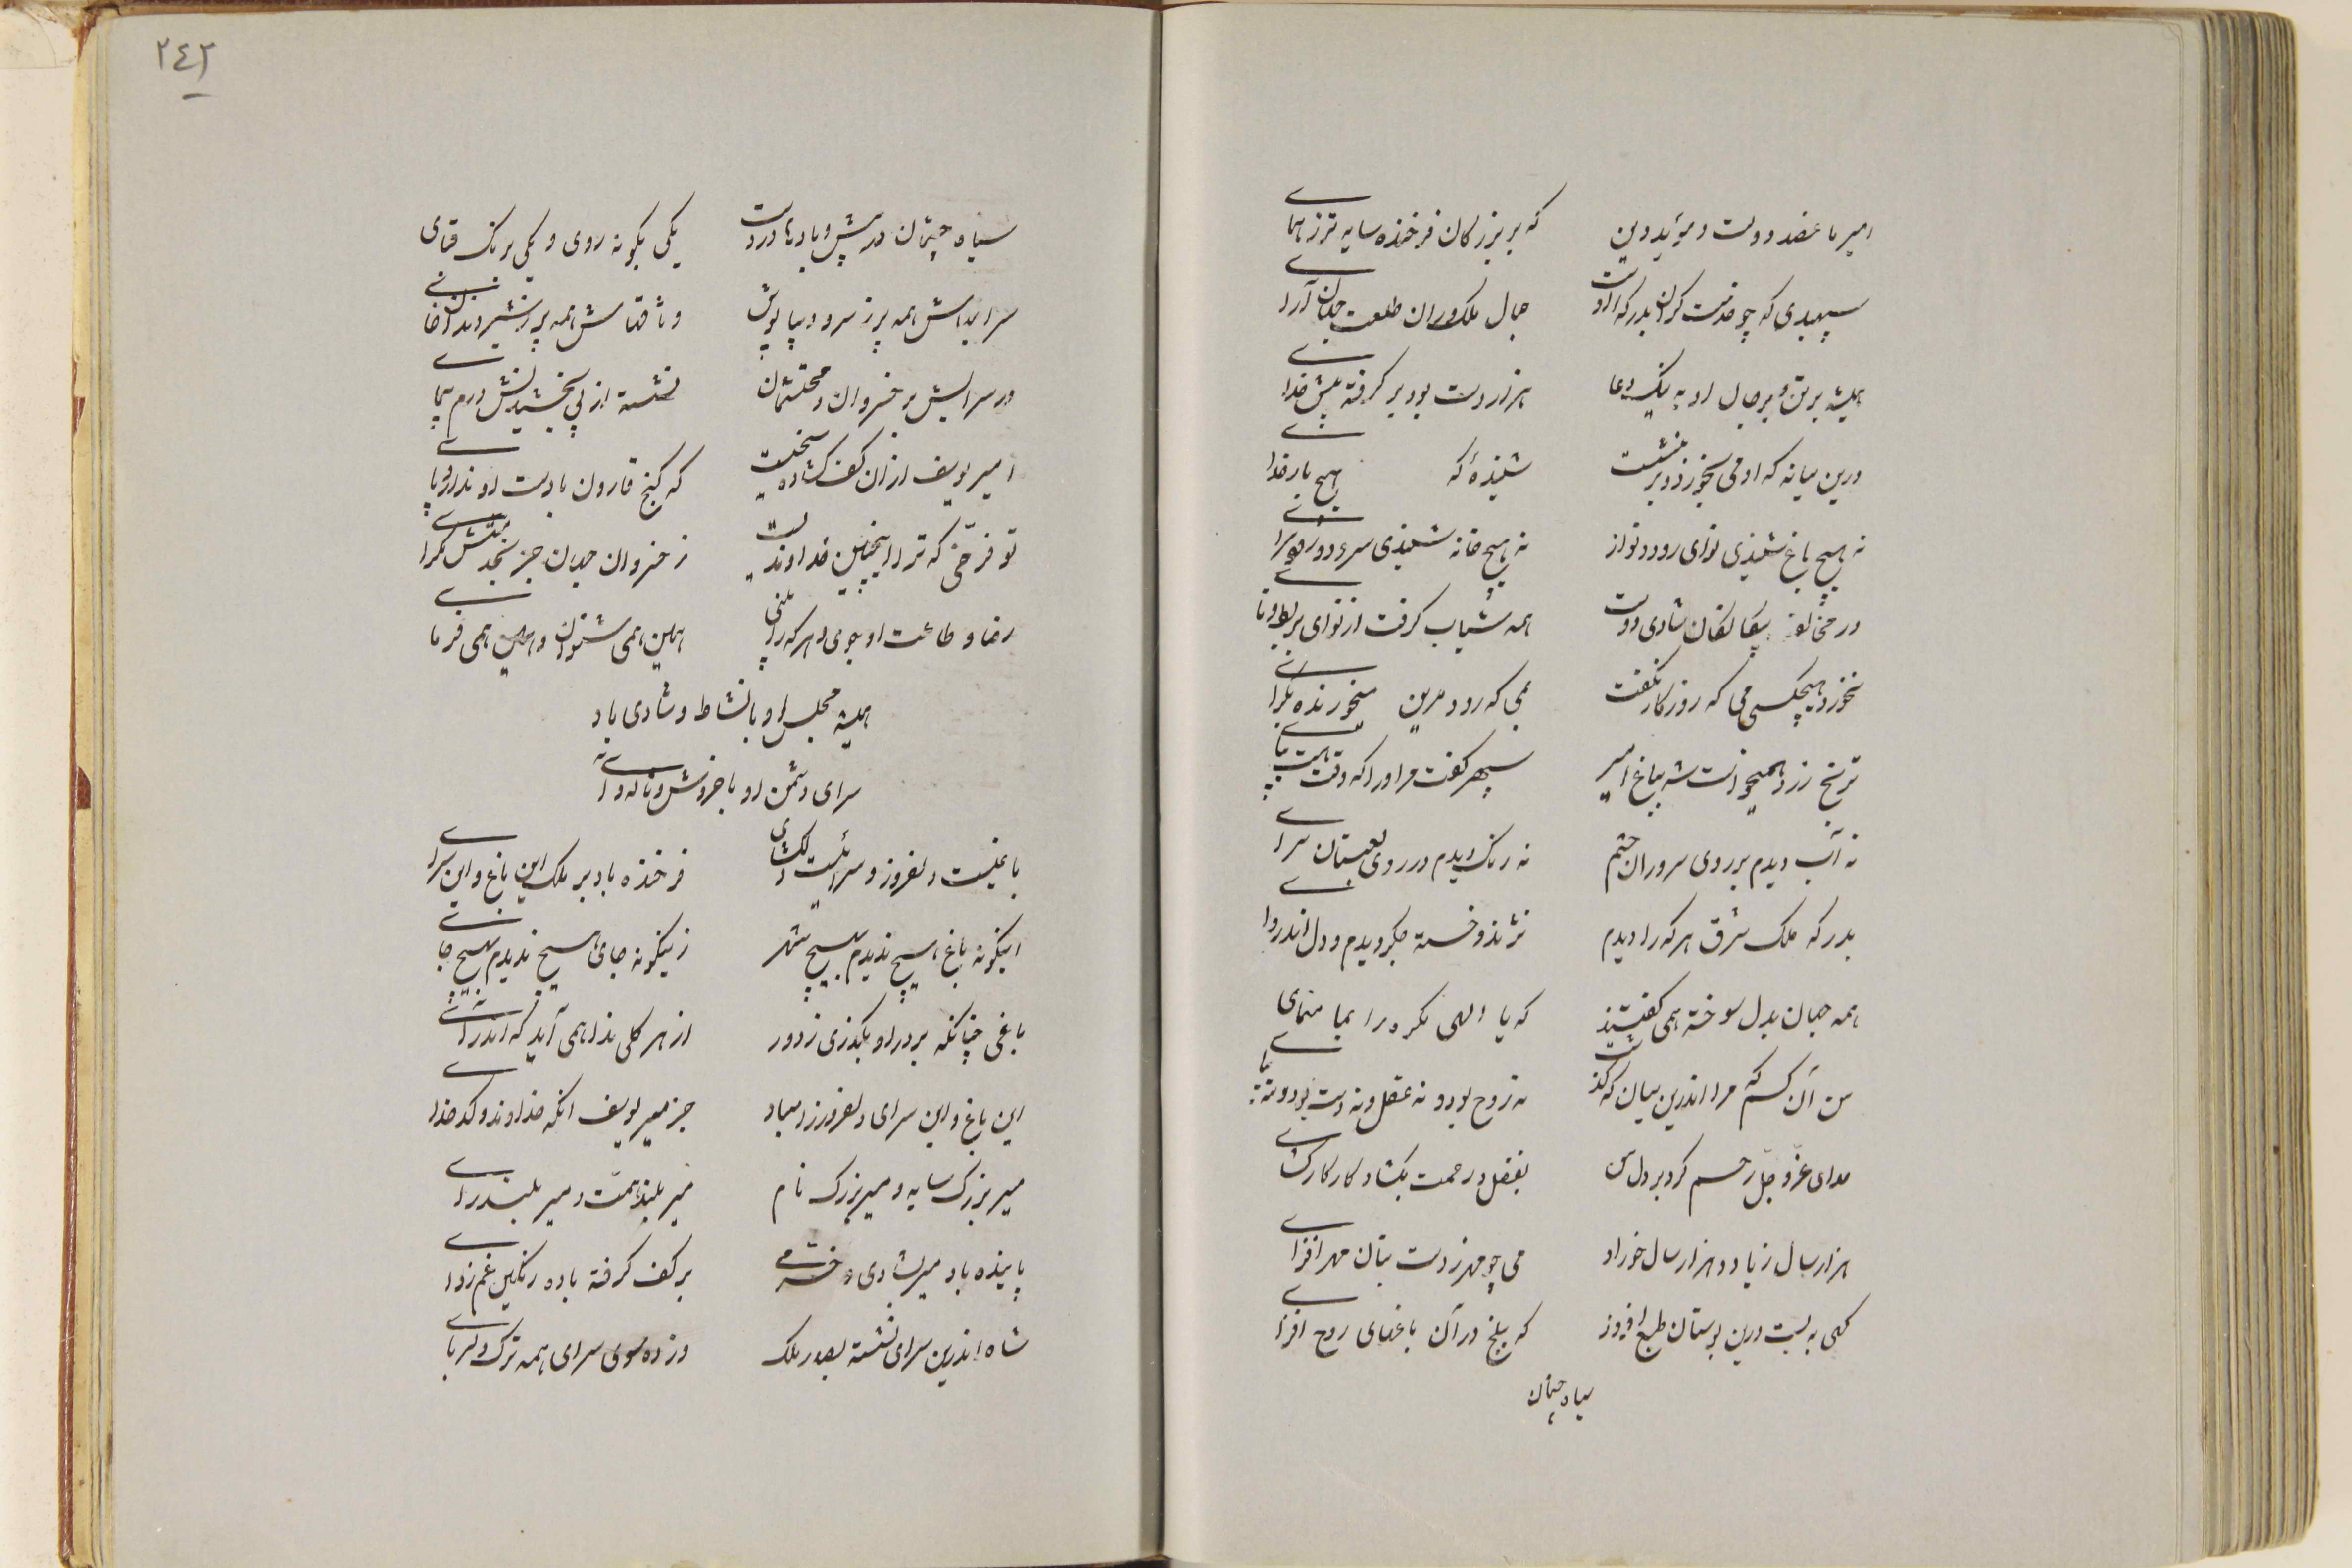 امیر ما عضد دولت و مؤید دین که بر بزرگان فرخنده سایه‌تر ز همای
سپهبدی که چو خدمت‌گران بدرگه اوست جمال ملک در آن طلعت جهان‌آرای
همیشه بر تن و بر جان او به نیک دعا هزار دست بود بر گرفته پیش خدای
درین میانه که او می نخورد و بر ننشست شنیده‌ٔ که هیچ بار خدای
نه هیچ باغ شنیدی نوای رود نواز نه هیچ خانه شنیدی سرود رودسرای
همه شتاب گرفت از نوای بربط و نای
نخورد هیچکسی می که روزگار نگفت همی که رود مزن می مخور نده بگرای
ترنج زرد همی‌خواست شد بباغ امیر سپهر گفت مر او را که وقت نیست بپای
نه آب دیدم بر روی سروران حشم نه رنگ دیدم در روی لعبتان سرای
بدرگه ملک شرق هر که را دیدم نژند و خسته جگر دیدم و دل اندروای
همه جهان بدل سوخته همی گفتند که یا الهی مکروه را بما منمای
من آن کسم که مرا اندرین میان که گذشت نه روح بود و نه عقل و نه دست بود و نه پای
خدای عزّ و جلّ رحم کرد بر دل من بفضل و رحمت بگشاد کار کارگشای
هزار سال زیاد و هزار سال خوراد می چو مهر ز دست بتان مهر افزای
گهی به بست درین بوستان طبع افروز گه ببلخ در آن باغهای روح افزای
سیاه چشمان
۲۴۲
سیاه چشمان در پیش و بادها در دست یکی بگونه روی و یکی برنگ قبای
سرابدانش همه پر ز سرو دیبا پوش وثاقهاش همه پر ز شیر دندان خای
در سرایش پر خسروان و محتشمان نشسته از پی بخشیدنش درم پیمای
امیر یوسف از آن کف گشاده سخیست که گنج قارون با دست او ندارد پای
تو فرّخی که ترا اینچنین خداوندیست ز خسروان جهان جز بخدمتش مگرای
رضا و طاعت او جوی و هر که را بینی همین همی شنوان و همین همی فرمای
همیشه مجلس او با نشاط و شادی باد
سرای دشمن او با خروش و ناله وای
باغیست دلفروز و سرائیست دلگشای فرخنده باد بر ملک این باغ و این سرای
اینگونه باغ هیچ ندیدم بهیچ شهر زینگونه جای هیچ ندیدم بهیچ جای
باغی چنانکه بر در او بگذری ز دور از هر گلی ندا همی آید که اندر آی
این باغ و این سرای دلفروز را مباد جز میر یوسف آنکه خداوند و کدخدای
میر بزرگ سایه و میر بزرگ نام میر بلند همّت و میر بلند رای
پاینده باد میر بشادی و خرّمی بر کف گرفته باده رنگین غم زدای
شاه اندرین سرای نشسته بصدر ملک وز ده سوی سرای همه ترک دلربای